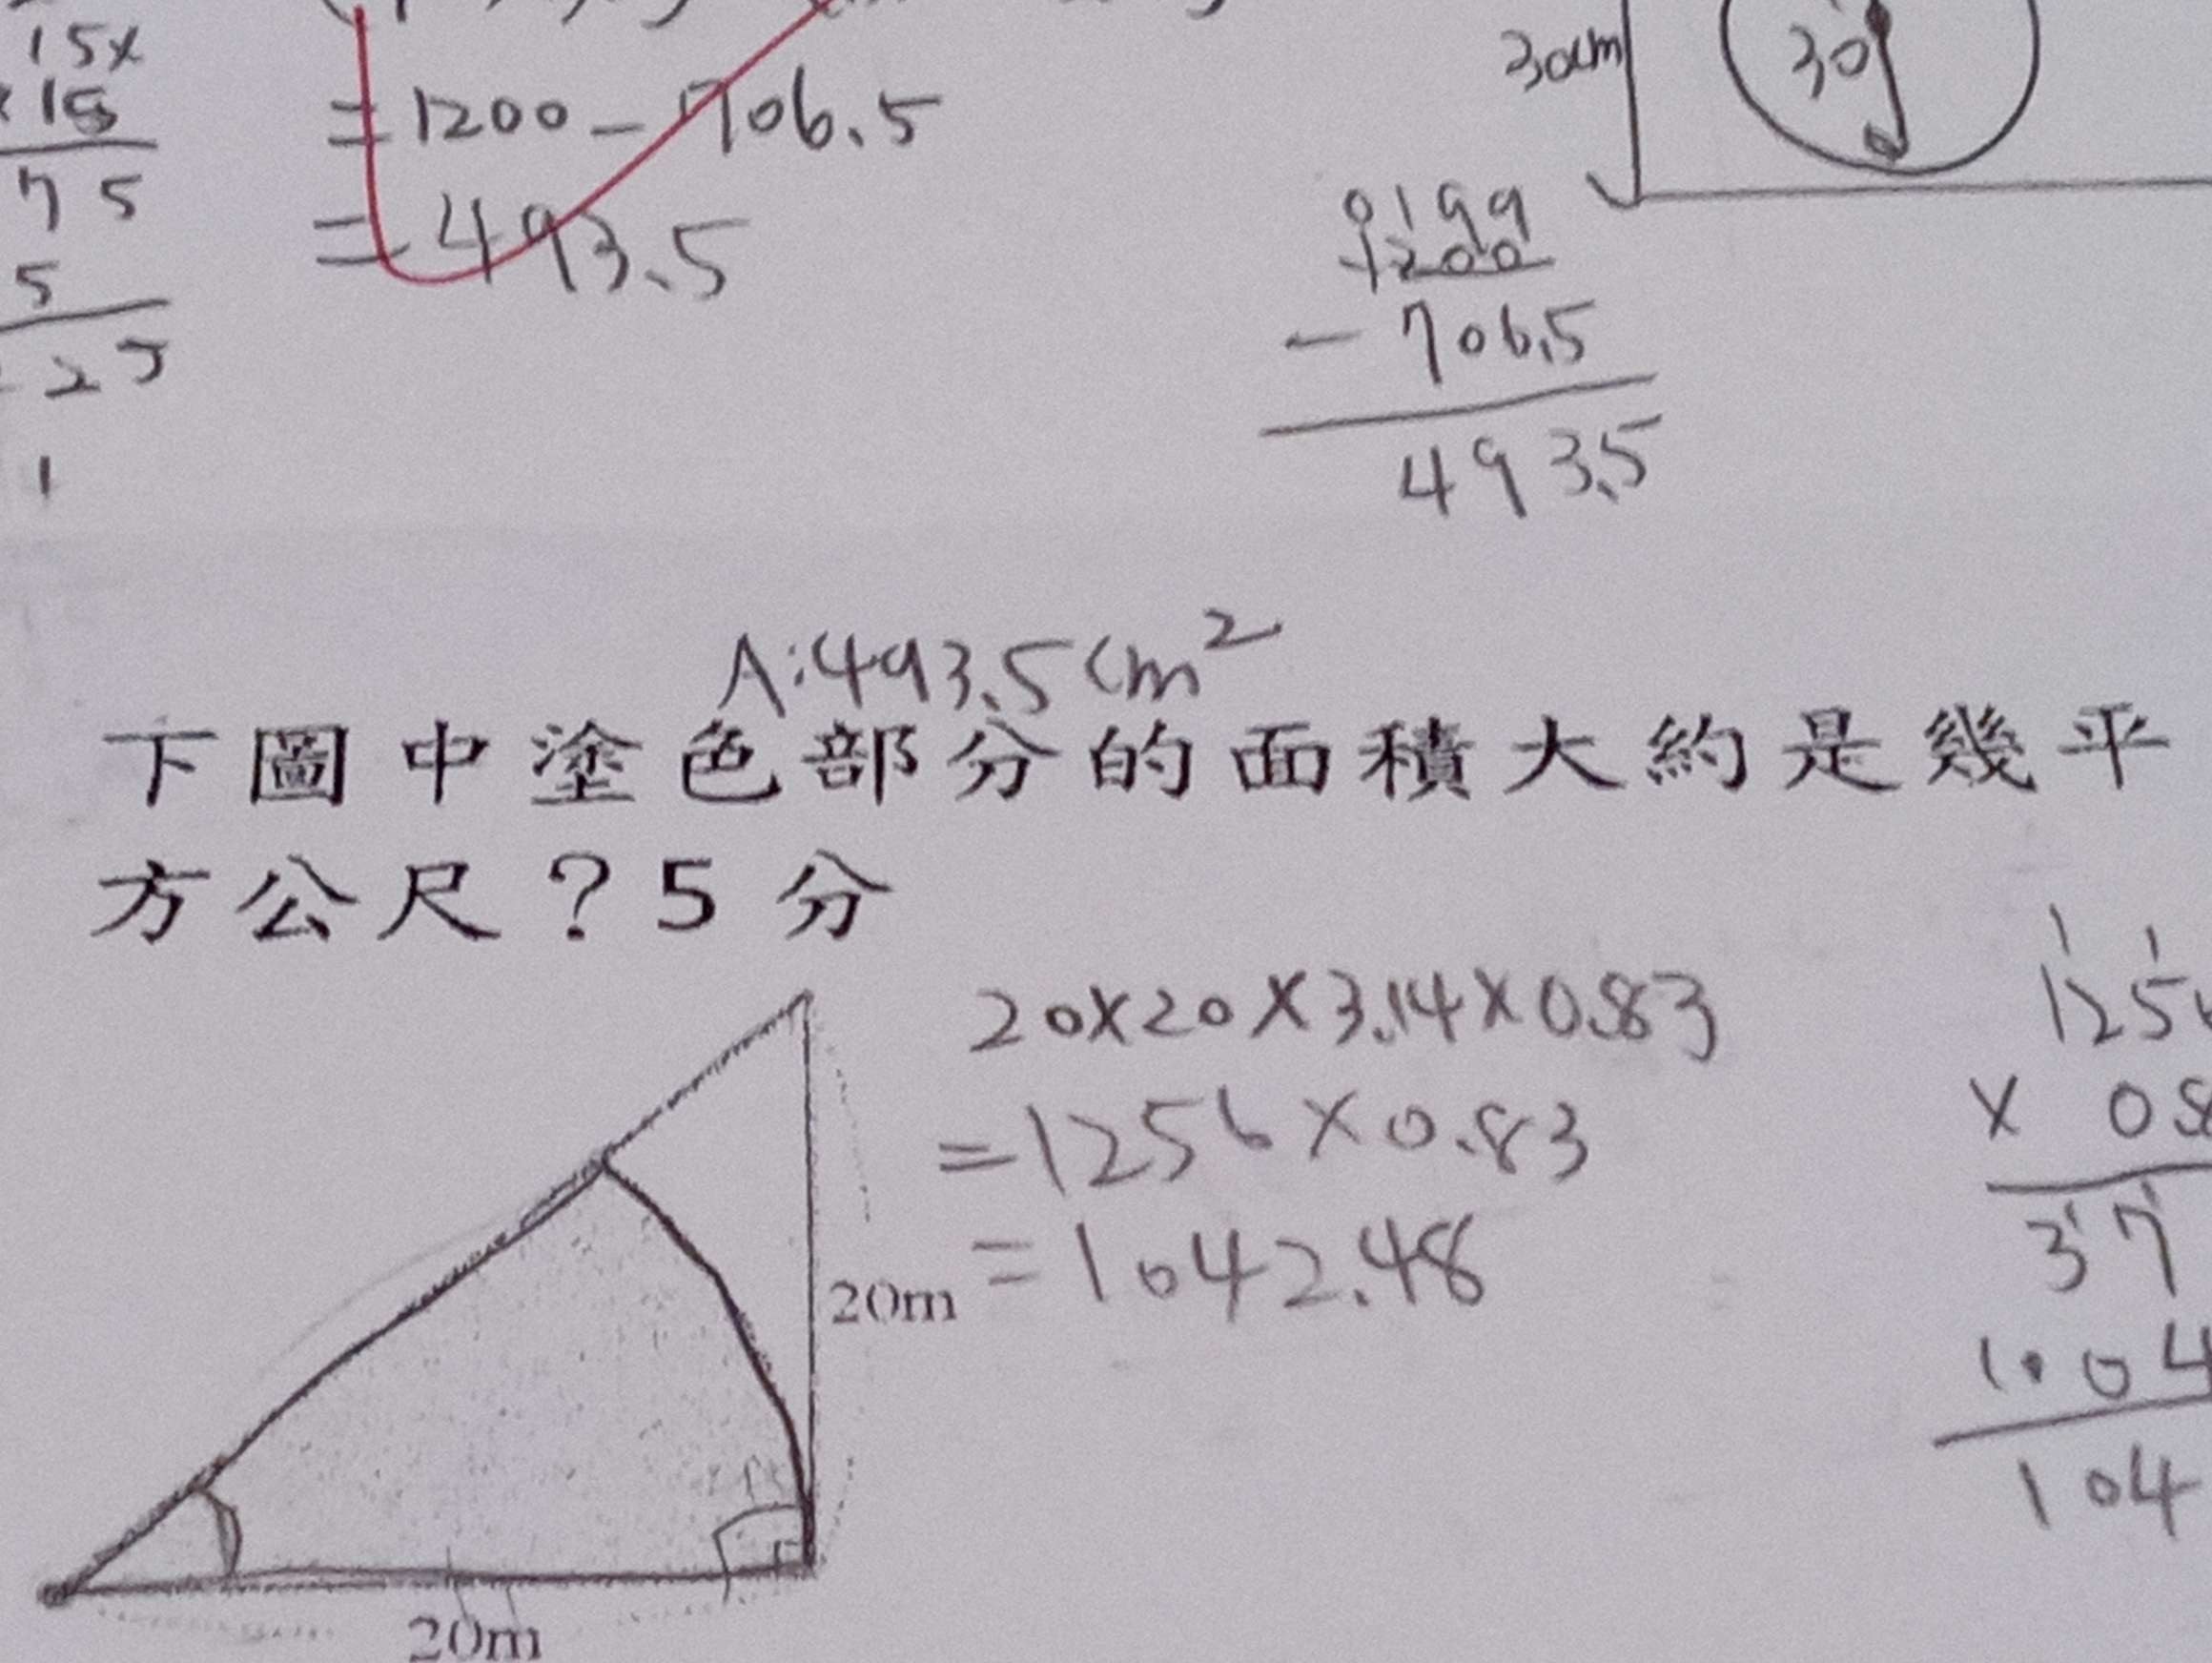 15x
× 15
75
5
25
1
=1200-706.5
=493.5
30cm
30
0199
1200
- 706.5
493.5
A:493.5cm²
下圖中塗色部分的面積大約是幾平
方公尺?5分
20×20×3.14×0.83
=1256×0.83
=1042.48
125
× 08
37
1.04
104
20m
20m